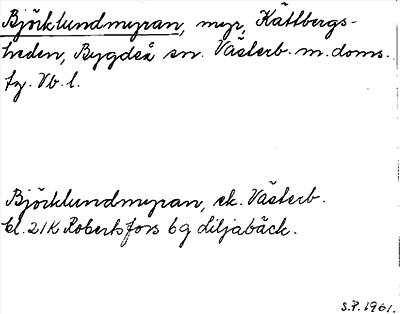 Björklundmyran, myr, Kättbergs-
heden, Bygdeå sn. Västerb. m. doms.
fg. Vb. l.
Björklundmyran, ek. Västerb.
bl. 21K Robertsfors 6g Liljabäck.
S.P. 1961.